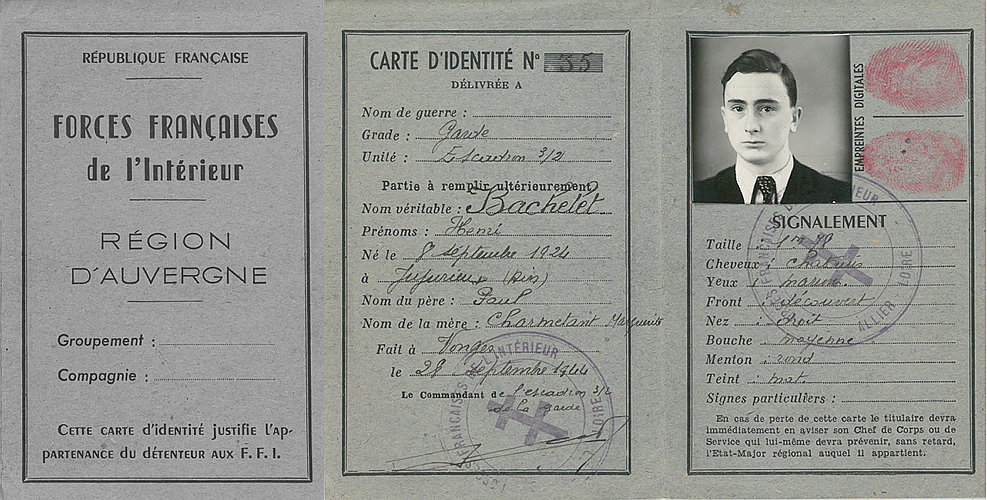 RÉPUBLIQUE FRANÇAISE
FORCES FRANÇAISES
de l'Intérieur
RÉGION
D'AUVERGNE
Groupement :
Compagnie :
CETTE CARTE D'IDENTITÉ JUSTIFIE L'AP-
PARTENANCE DU DÉTENTEUR AUX F. F. I.
CARTE D'IDENTITÉ N° 35
DÉLIVRÉE A
Nom de guerre :
Grade : Garde
Unité : Escadron 3/2
Partie à remplir ultérieurement
Nom véritable : Bachelet
Prénoms : Henri
Né le 8 septembre 1924
à Jujurieux (Ain)
Nom du père : Paul
Nom de la mère : Charmetant Marguerite
Fait à Vonges
le 28 septembre 1944
Le Commandant de l'escadron 3/2
de la garde
FRANÇAISES DE L'INTÉRIEUR
LOIRE
EMPREINTES DIGITALES
SIGNALEMENT
Taille : 1m 78
Cheveux : chatains
Yeux : marron
Front : découvert
Nez : droit
Bouche : moyenne
Menton : rond
Teint : mat.
Signes particuliers :
FRANÇAISES DE L'INTÉRIEUR
ALLIER - LOIRE
En cas de perte de cette carte le titulaire devra
immédiatement en aviser son Chef de Corps ou de
Service qui lui-même devra prévenir, sans retard,
l'Etat-Major régional auquel il appartient.